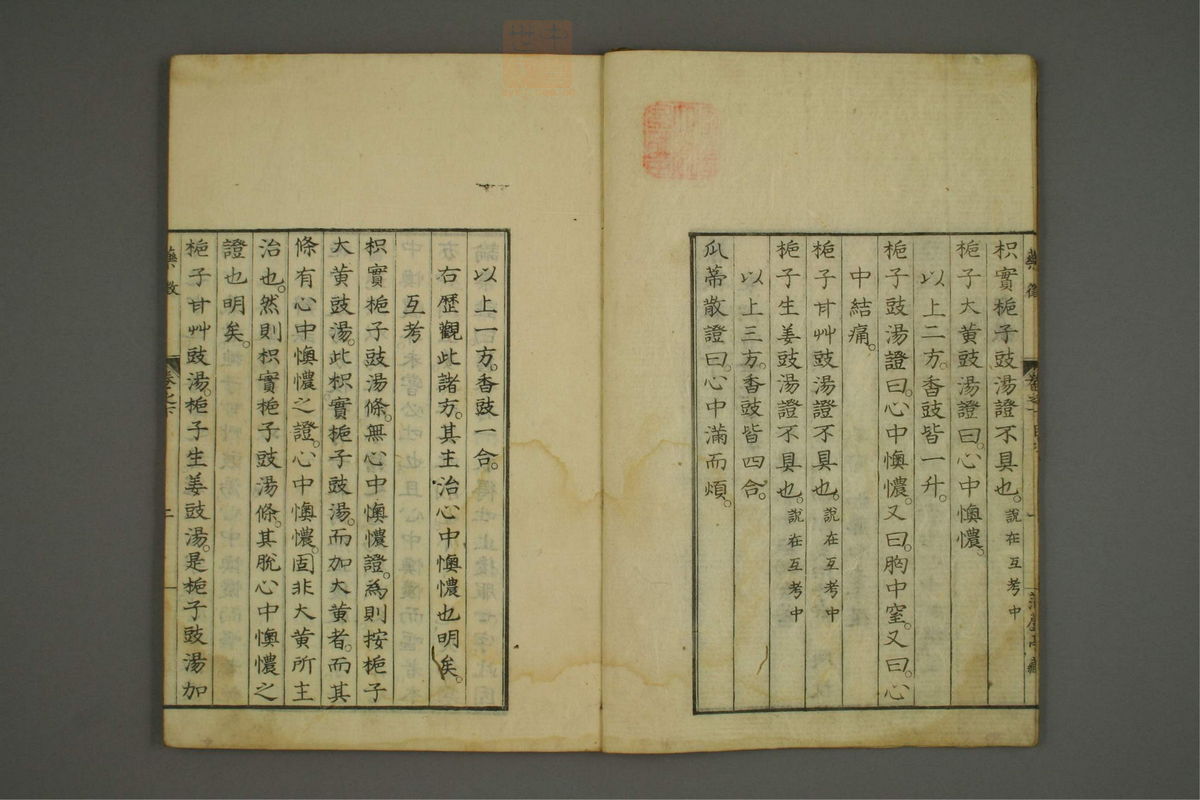 枳實梔子豉湯證不具也。說在互考中
梔子大黃豉湯證曰。心中懊憹。
以上二方。香豉皆一升。
梔子豉湯證曰。心中懊憹。又曰。胸中窒。又曰。心
中結痛。
梔子甘艸豉湯證不具也。說在互考中
梔子生姜豉湯證不具也。說在互考中
以上三方。香豉皆四合。
瓜蔕散證曰。心中滿而煩。
以上一方。香豉一合。
右歷觀此諸方。其主治心中懊憹也明矣。
互考
枳實梔子豉湯條。無心中懊憹證。為則按梔子
大黃豉湯。此枳實梔子豉湯。而加大黃者。而其
條有心中懊憹之證。心中懊憹。固非大黃所主
治也。然則枳實梔子豉湯條。其脫心中懊憹之
證也明矣。
梔子甘艸豉湯。梔子生姜豉湯。是梔子豉湯加